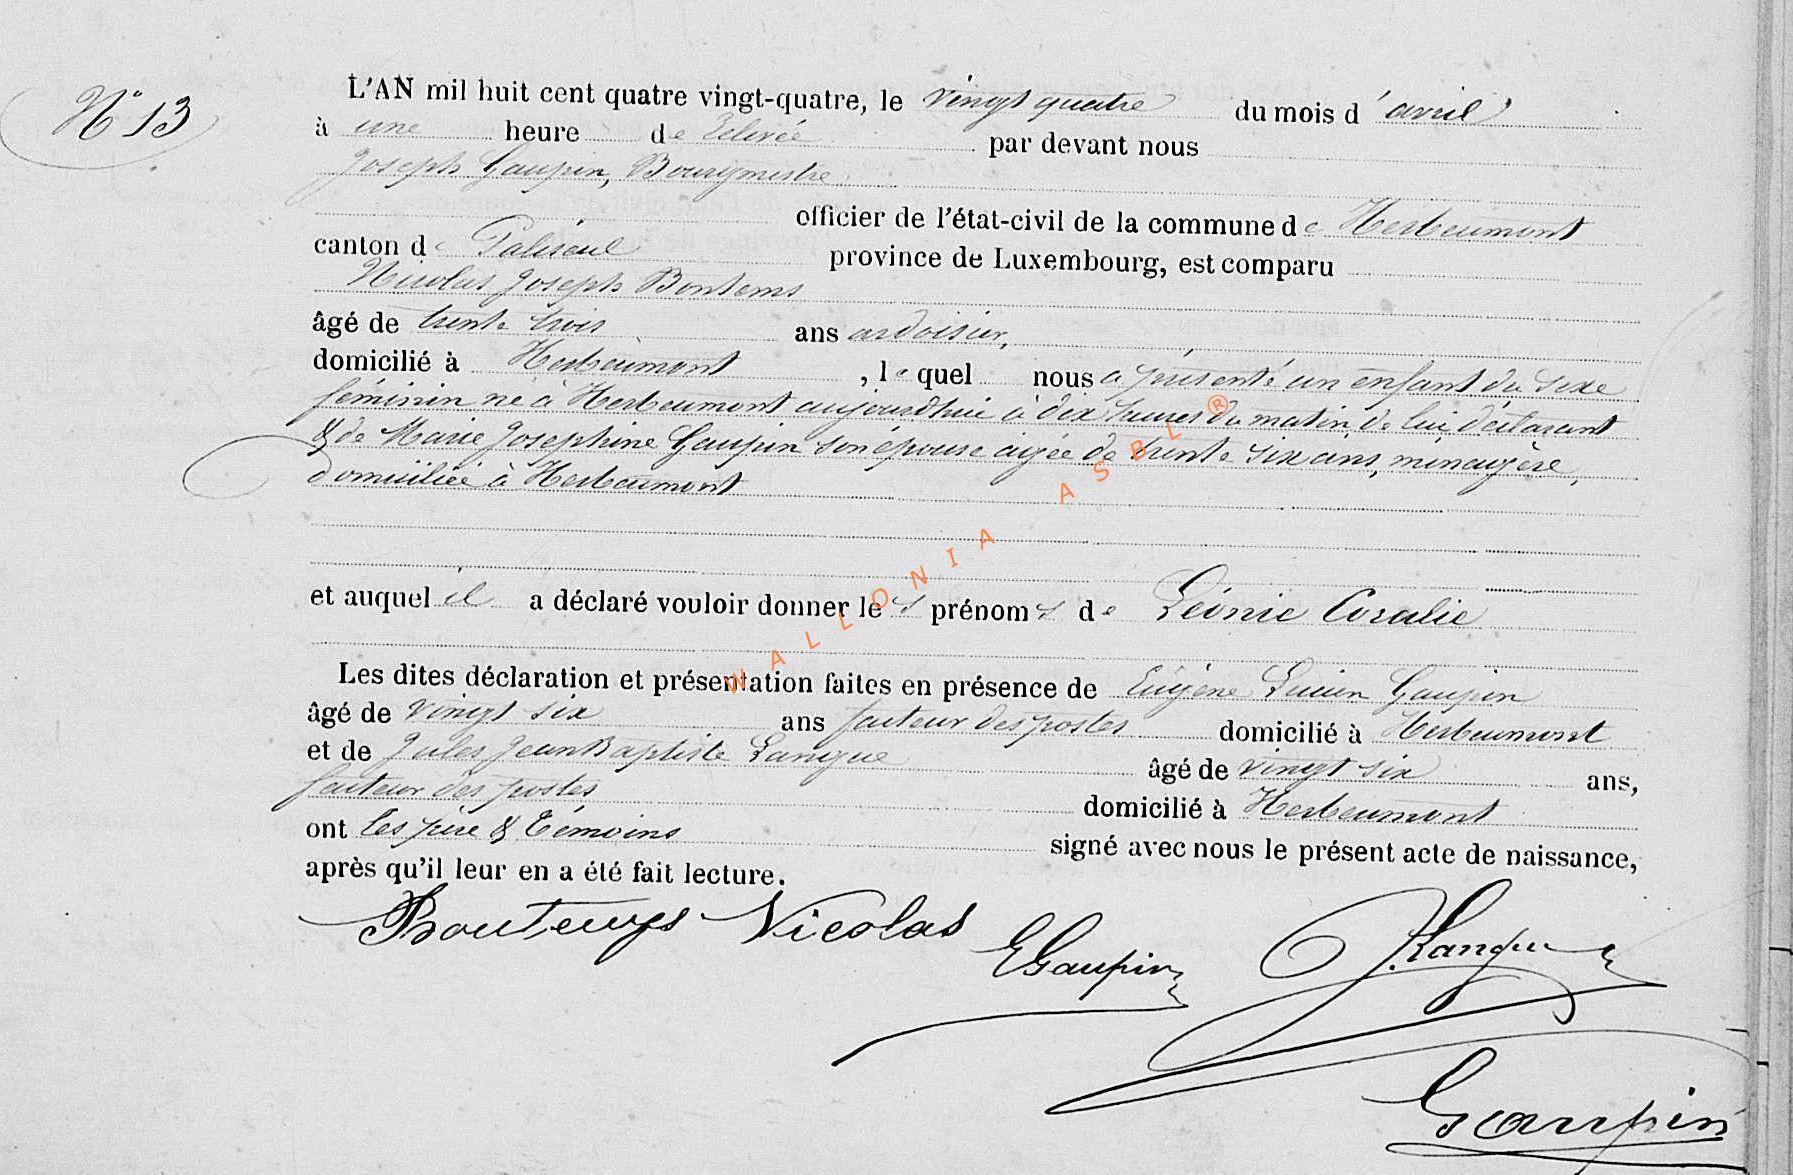 N° 13
L'AN mil huit cent quatre vingt-quatre, le vingt quatre du mois d'avril
à une heure de relevée par devant nous
Joseph Gaupin, Bourgmestre
officier de l'état-civil de la commune de Herbeumont
canton de Paliseul province de Luxembourg, est comparu
Nicolas Joseph Bontems
âgé de trente trois ans ardoisier,
domicilié à Herbeumont, lequel nous a présenté un enfant du sexe
féminin né à Herbeumont aujourdhui à dix heures du matin, de lui déclarant
& de Marie Josephine Gaupin son épouse agée de trente six ans, ménagère,
domiciliée à Herbeumont
et auquel il a déclaré vouloir donner les prénoms de Léonie Coralie
Les dites déclaration et présentation faites en présence de Eugène Lucien Gaupin
âgé de vingt six ans facteur des postes domicilié à Herbeumont
et de Jules Jean Baptiste Langue âgé de vingt six ans,
facteur des postes domicilié à Herbeumont
ont les père & témoins signé avec nous le présent acte de naissance,
après qu'il leur en a été fait lecture.
Boutemps Nicolas
EGaupin
J. Langue
Gaupin
WALLONIA ASBL ®